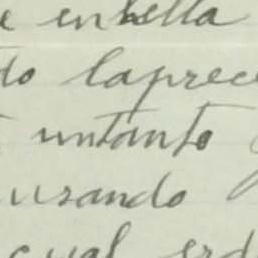 e enbella
to laprece
untanto
urando
cual